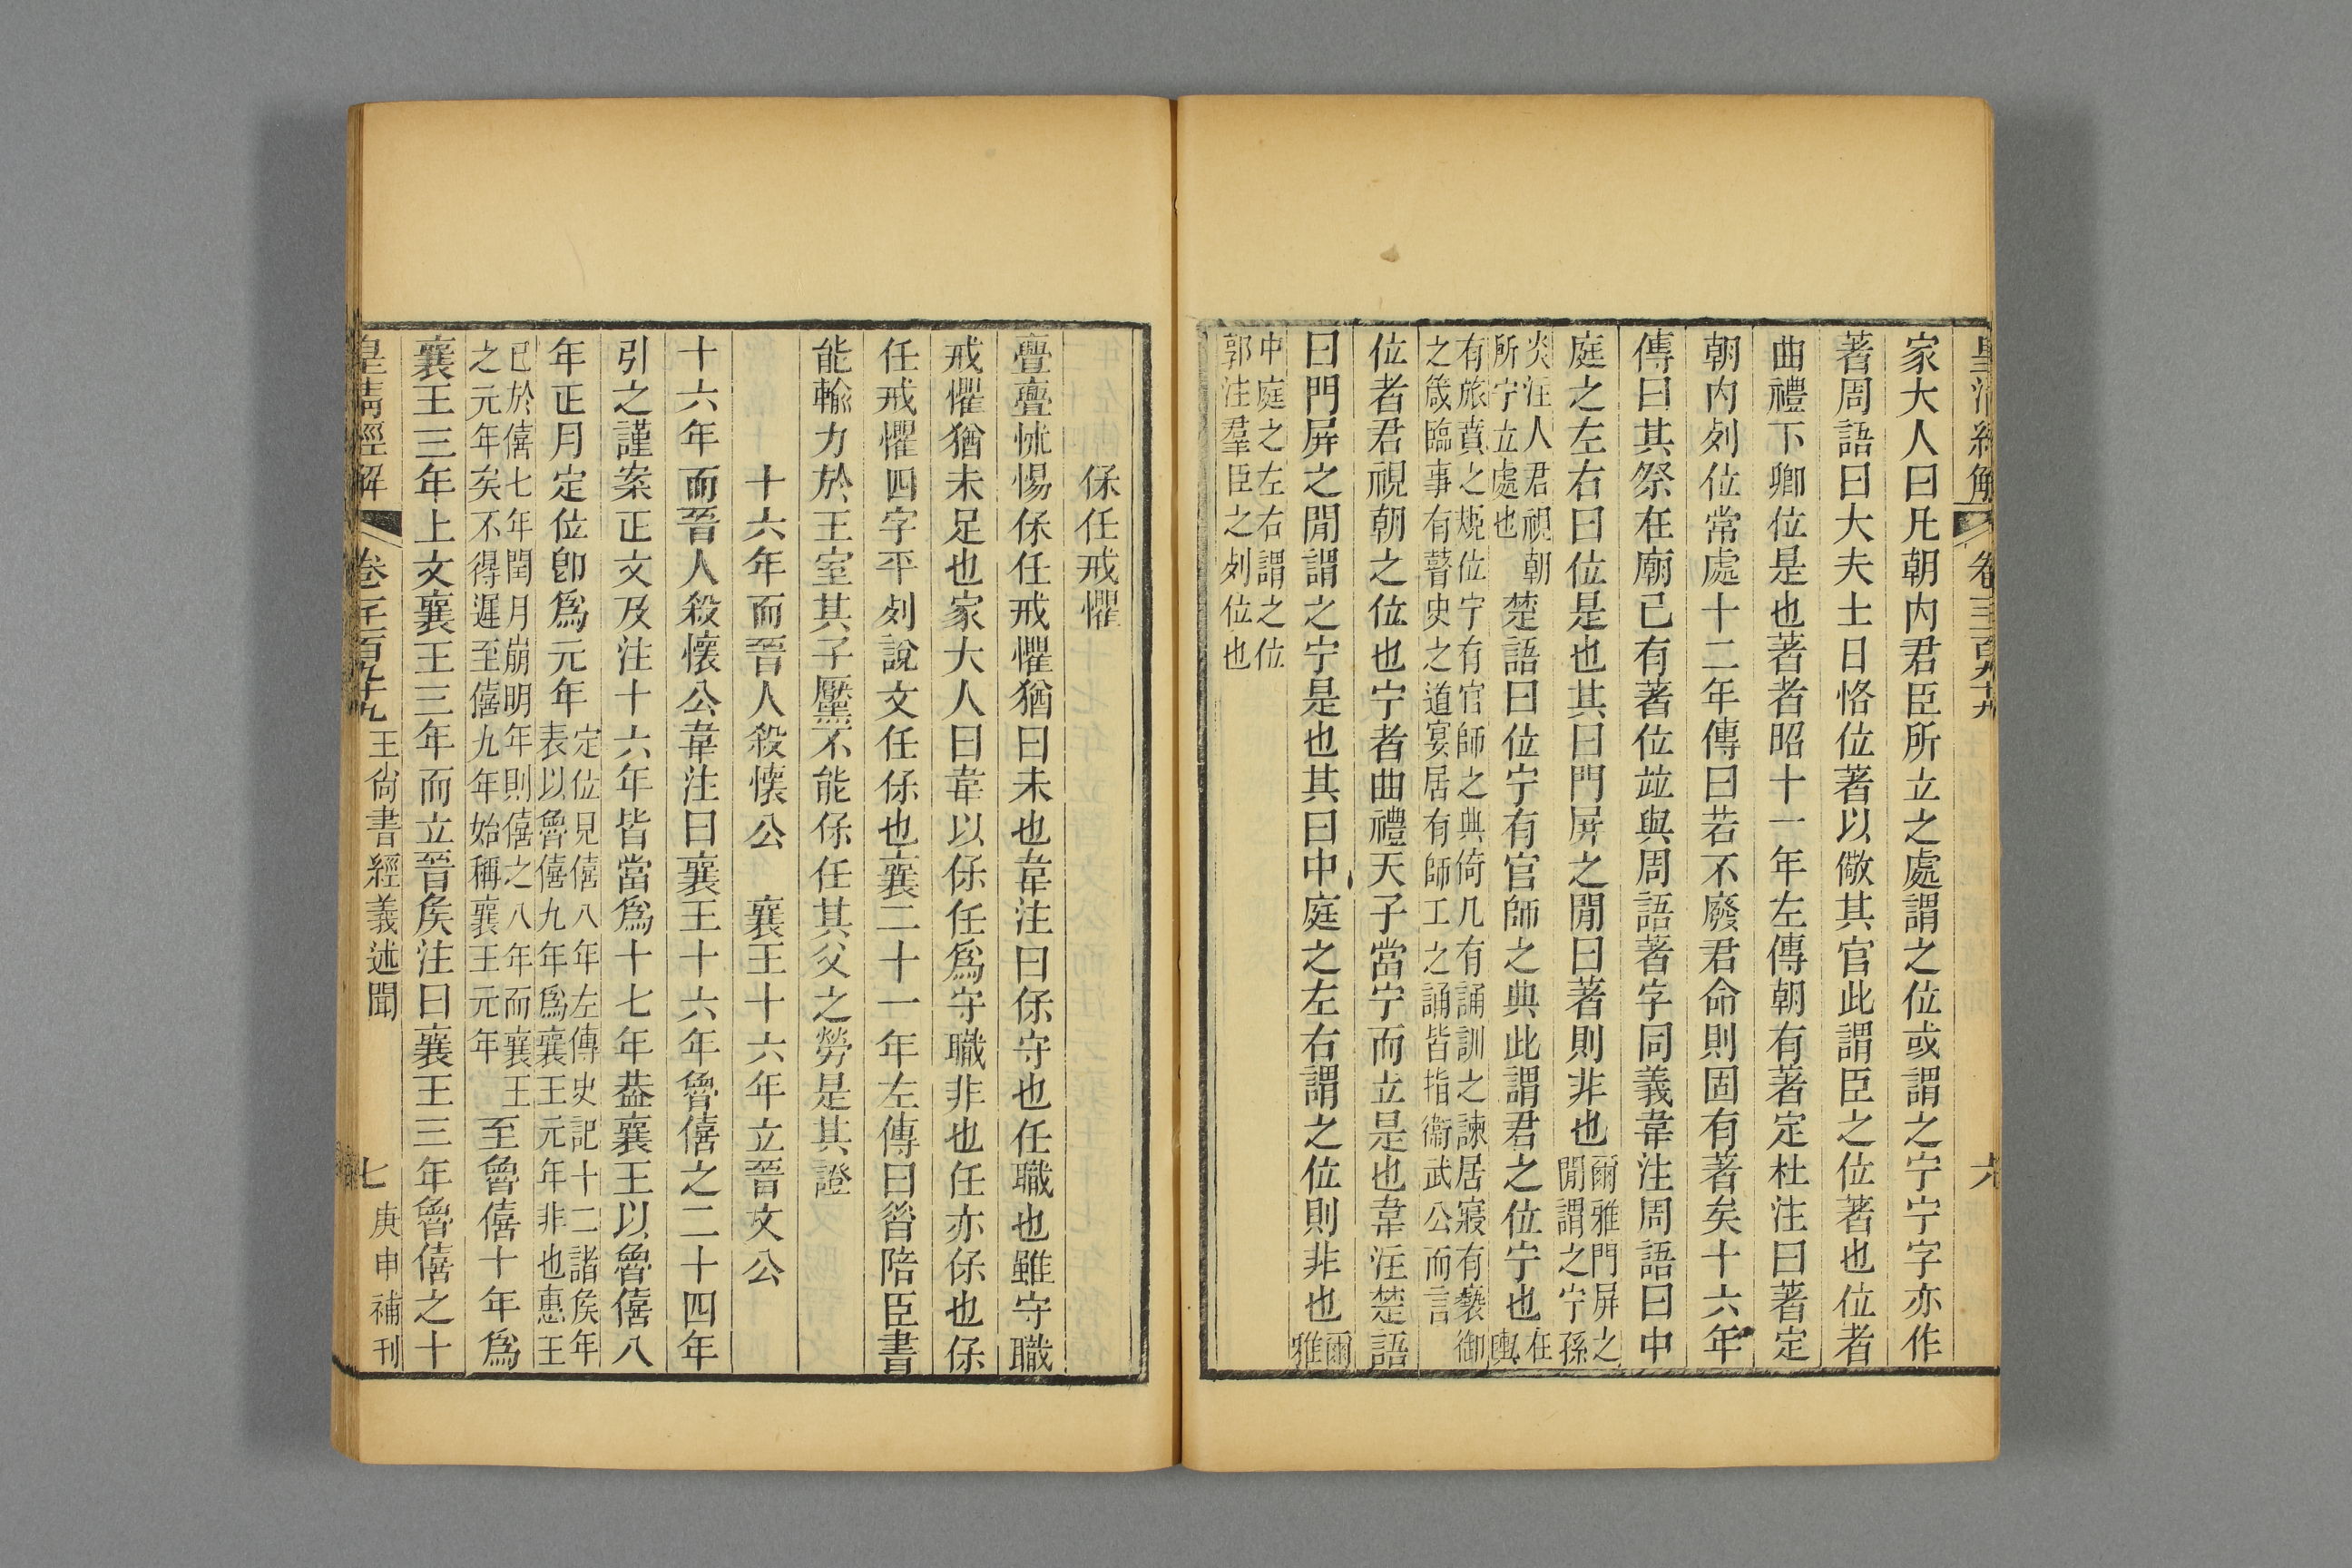 皇清經解 卷一千一百九十九 六
家大人曰凡朝内君臣所立之處謂之位或謂之宁宁字亦作
著周語曰大夫士日恪位著以儆其官此謂臣之位著也位者
曲禮下卿位是也著者昭十一年左傳朝有著定杜注曰著定
朝内列位常處十二年傳曰若不廢君命則固有著矣十六年
傳曰其祭在廟已有著位竝與周語著字同義韋注周語曰中
庭之左右曰位是也其曰門屏之閒曰著則非也爾雅門屏之
閒謂之宁孫
炎注人君視朝
所宁立處也楚語曰位宁有官師之典此謂君之位宁也在
輿
有旅賁之規位宁有官師之典倚几有誦訓之諫居寢有褻御
之箴臨事有瞽史之道宴居有師工之誦皆指衞武公而言
位者君視朝之位也宁者曲禮天子當宁而立是也韋注楚語
曰門屏之閒謂之宁是也其曰中庭之左右謂之位則非也爾
雅
中庭之左右謂之位
郭注羣臣之列位也
保任戒懼
亹亹怵惕保任戒懼猶曰未也韋注曰保守也任職也雖守職
戒懼猶未足也家大人曰韋以保任爲守職非也任亦保也保
任戒懼四字平列說文任保也襄二十一年左傳曰昝陪臣書
能輸力於王室其子黶不能保任其父之勞是其證
十六年而晉人殺懷公 襄王十六年立晉文公
十六年而晉人殺懷公韋注曰襄王十六年魯僖之二十四年
引之謹案正文及注十六年皆當爲十七年葢襄王以魯僖八
年正月定位卽爲元年定位見僖八年左傳史記十二諸侯年
表以魯僖九年爲襄王元年非也惠王
已於僖七年閏月崩明年則僖之八年而襄王
之元年矣不得遲至僖九年始稱襄王元年至魯僖十年爲
襄王三年上文襄王三年而立晉侯注曰襄王三年魯僖之十
皇清經解 卷一千一百九十九 王尙書經義述聞 七 庚申補刊